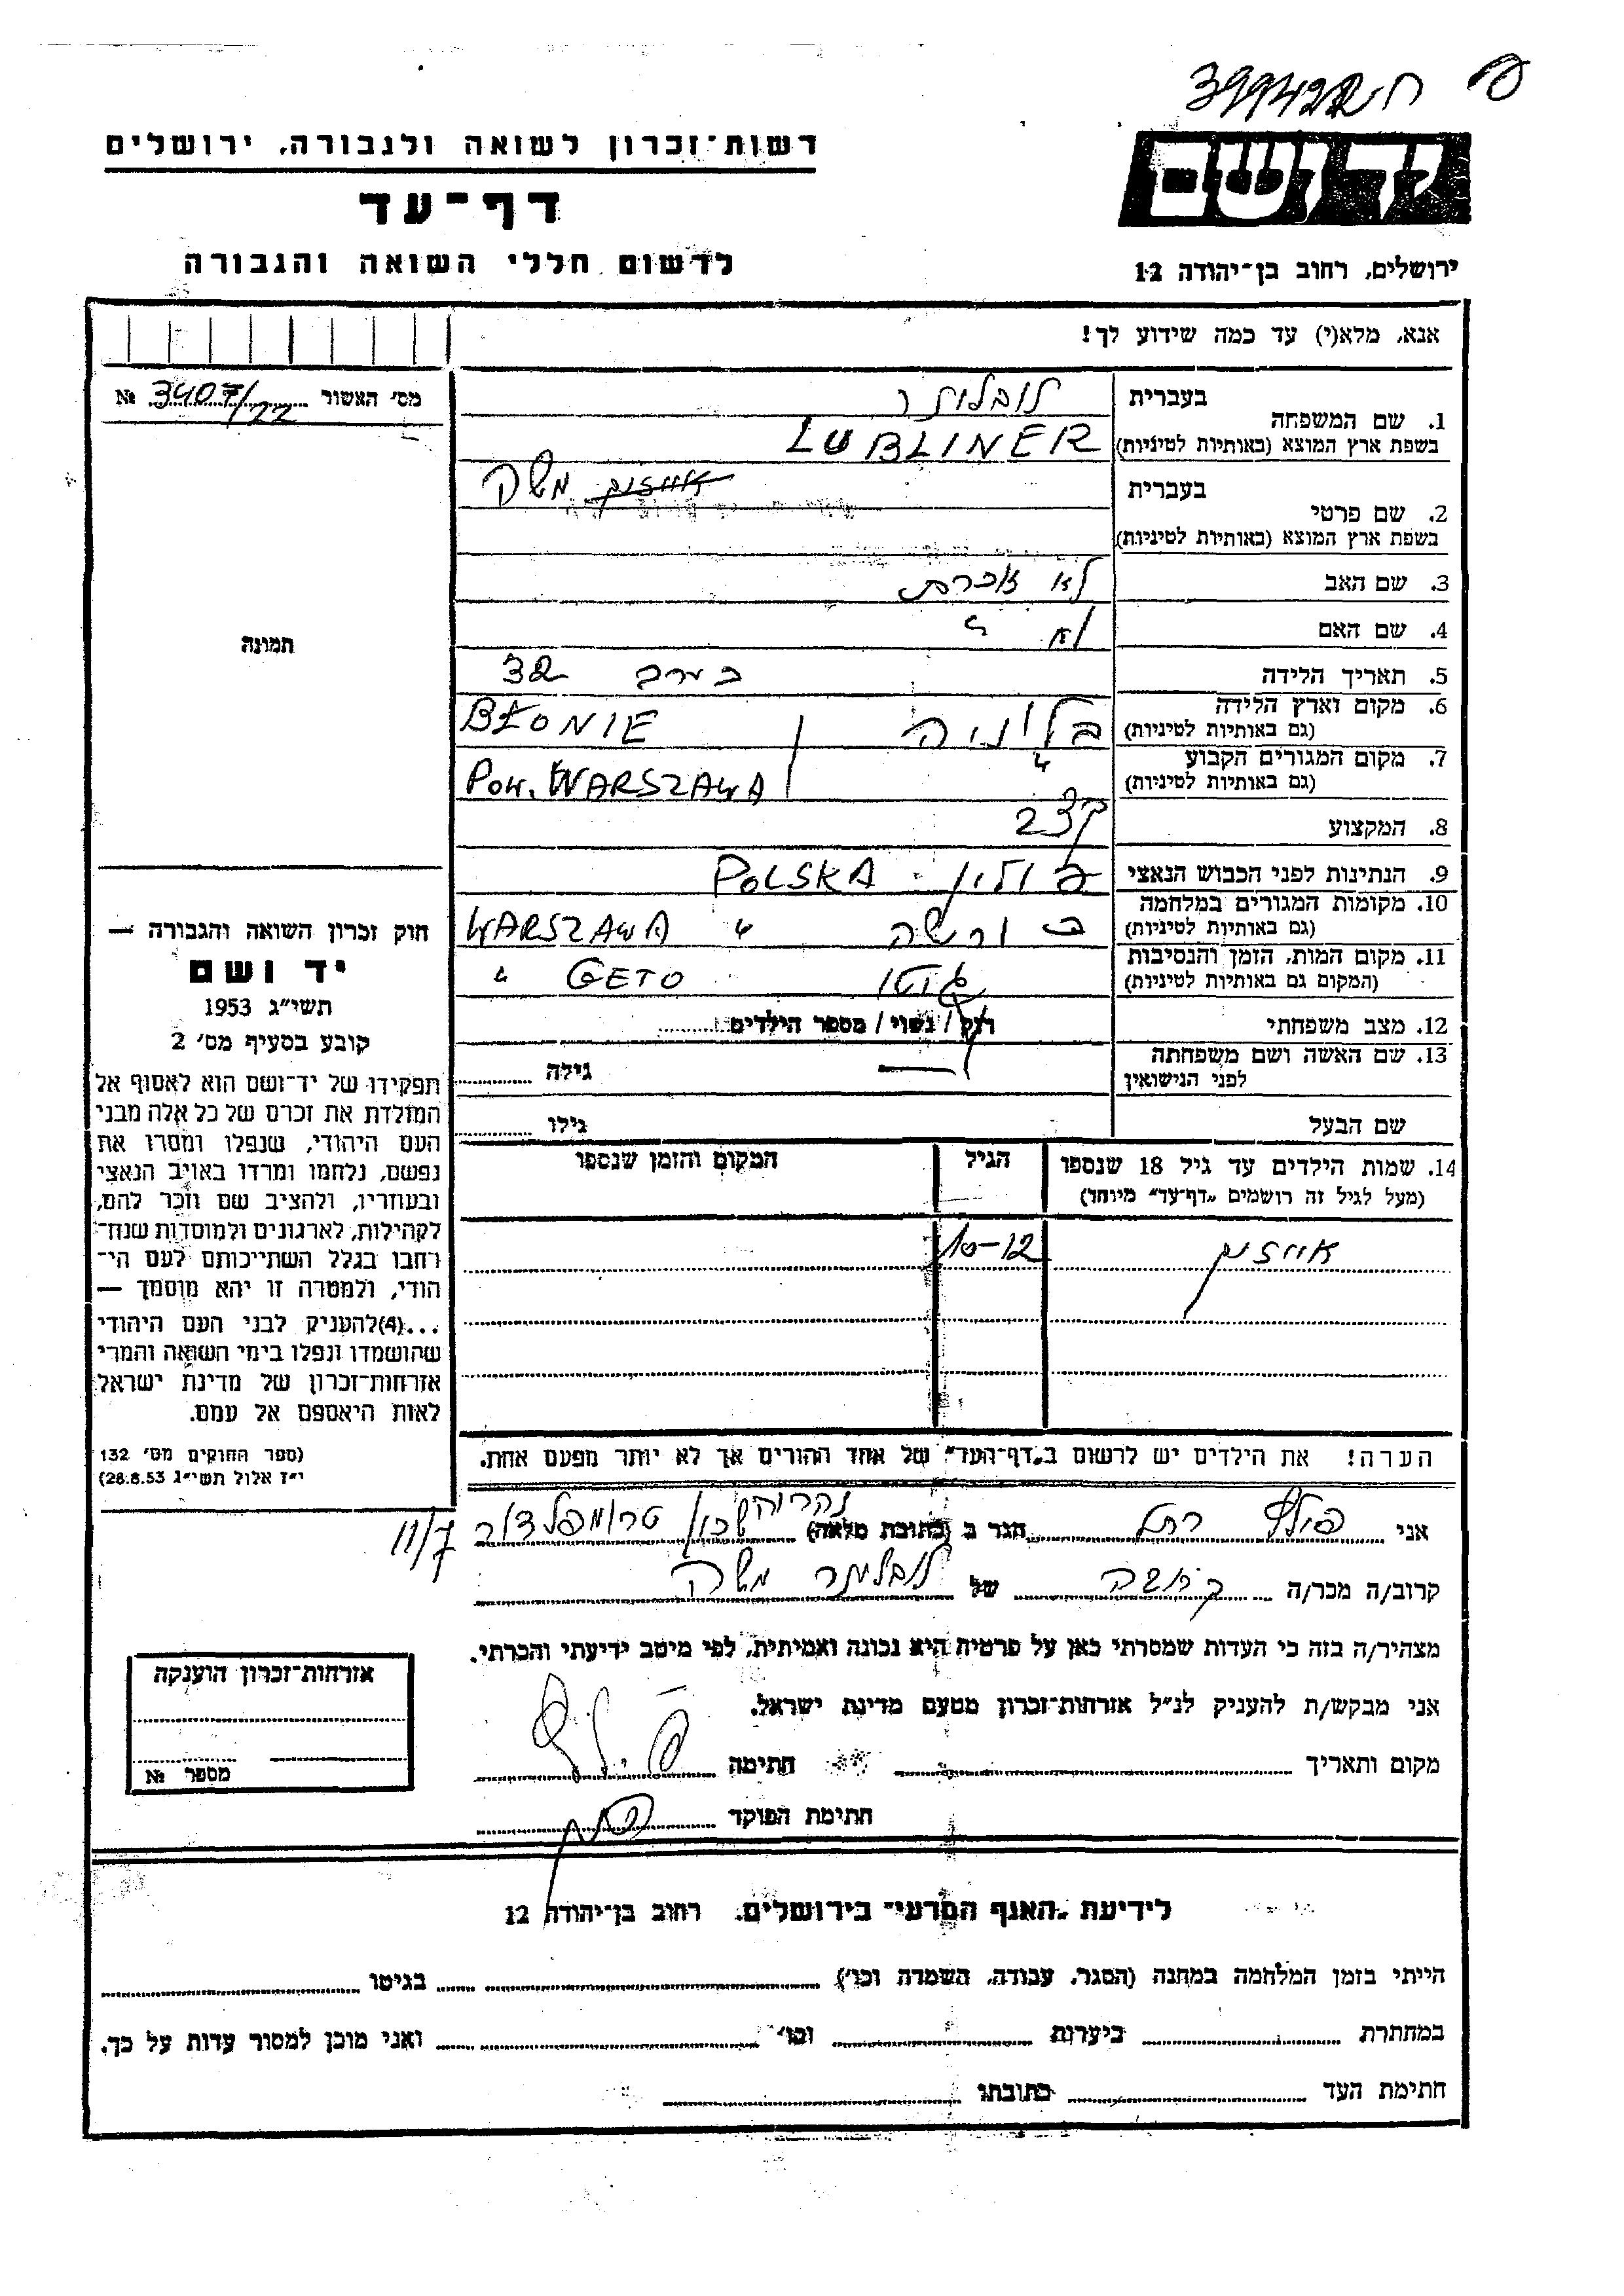 399422 ח
רשות־זכרון לשואה ולגבורה, ירושלים
דף־עד
לרשום חללי השואה והגבורה
יד ושם
ירושלים, רחוב בן־יהודה 12
אנא, מלא(י) עד כמה שידוע לך!
מס׳ האשור 3407/22 №
תמונה
1. שם המשפחה
בעברית לובלינר
בשפת ארץ המוצא (באותיות לטיניות) LUBLINER
2. שם פרטי
בעברית משה
בשפת ארץ המוצא (באותיות לטיניות)
3. שם האב לא זוכרת
4. שם האם לא "
5. תאריך הלידה בערך 32
6. מקום וארץ הלידה (גם באותיות לטיניות) בלוניה BŁONIE
7. מקום המגורים הקבוע (גם באותיות לטיניות) " POW. WARSZAWA
8. המקצוע קצב
9. הנתינות לפני הכבוש הנאצי פולין - POLSKA
10. מקומות המגורים במלחמה (גם באותיות לטיניות) בורשה " WARSZAWA
11. מקום המות, הזמן והנסיבות (המקום גם באותיות לטיניות) גיטו GETO "
12. מצב משפחתי רוק / נשוי / מספר הילדים
13. שם האשה ושם משפחתה לפני הנישואין — גילה
שם הבעל גילו
14. שמות הילדים עד גיל 18 שנספו
(מעל לגיל זה רושמים „דף־עד״ מיוחד)
הגיל
המקום והזמן שנספו
10-12
הערה! את הילדים יש לרשום ב„דף־העד״ של אחד ההורים אך לא יותר מפעם אחת.
חוק זכרון השואה והגבורה —
יד ושם
תשי״ג 1953
קובע בסעיף מס׳ 2
תפקידו של יד־ושם הוא לאסוף אל
המולדת את זכרם של כל אלה מבני
העם היהודי, שנפלו ומסרו את
נפשם, נלחמו ומרדו באויב הנאצי
ובעוזריו, ולהציב שם וזכר להם,
לקהילות, לארגונים ולמוסדות שנח־
רבו בגלל השתייכותם לעם הי־
הודי, ולמטרה זו יהא מוסמך —
...(4)להעניק לבני העם היהודי
שהושמדו ונפלו בימי השואה והמרי
אזרחות־זכרון של מדינת ישראל
לאות היאספם אל עמם.
(ספר החוקים מס׳ 132
י״ז אלול תשי״ג 28.8.53)
אני רחל הגר ב (כתובת מלאה) נהריה שכון טרומפלדור 11/7
קרוב/ה מכר/ה של לובלינר משה
מצהיר/ה בזה כי העדות שמסרתי כאן על פרטיה היא נכונה ואמיתית, לפי מיטב ידיעתי והכרתי.
אני מבקש/ת להעניק לנ״ל אזרחות־זכרון מטעם מדינת ישראל.
מקום ותאריך חתימה
חתימת הפוקד
אזרחות־זכרון הוענקה
מספר №
לידיעת „האגף המדעי״ בירושלים, רחוב בן־יהודה 12
הייתי בזמן המלחמה במחנה (הסגר, עבודה, השמדה וכו׳) בגיטו
במחתרת ביערות וכו׳ ואני מוכן למסור עדות על כך.
חתימת העד כתובתו